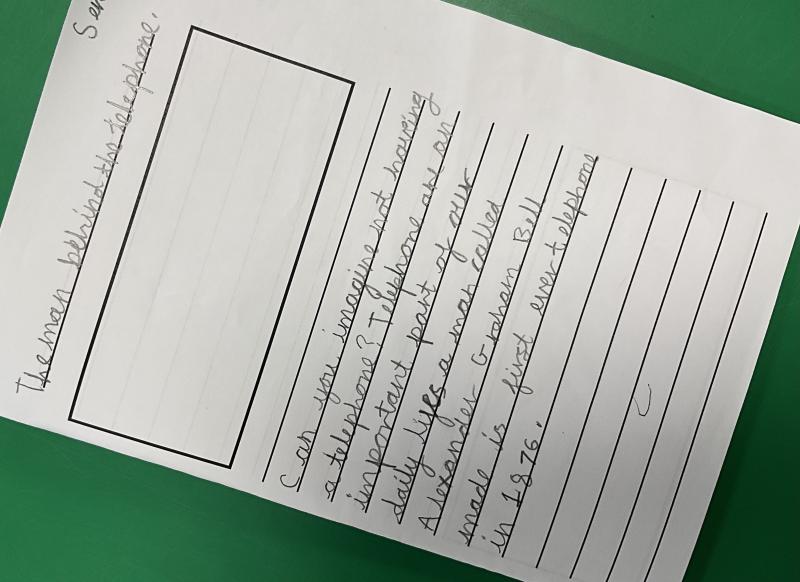 The man behind the telephone.
Can you imagine not having
a telephone? Telephone are an
important part of our
daily lives a man called
Alexander Graham Bell
made is first ever telephone
in 1876.